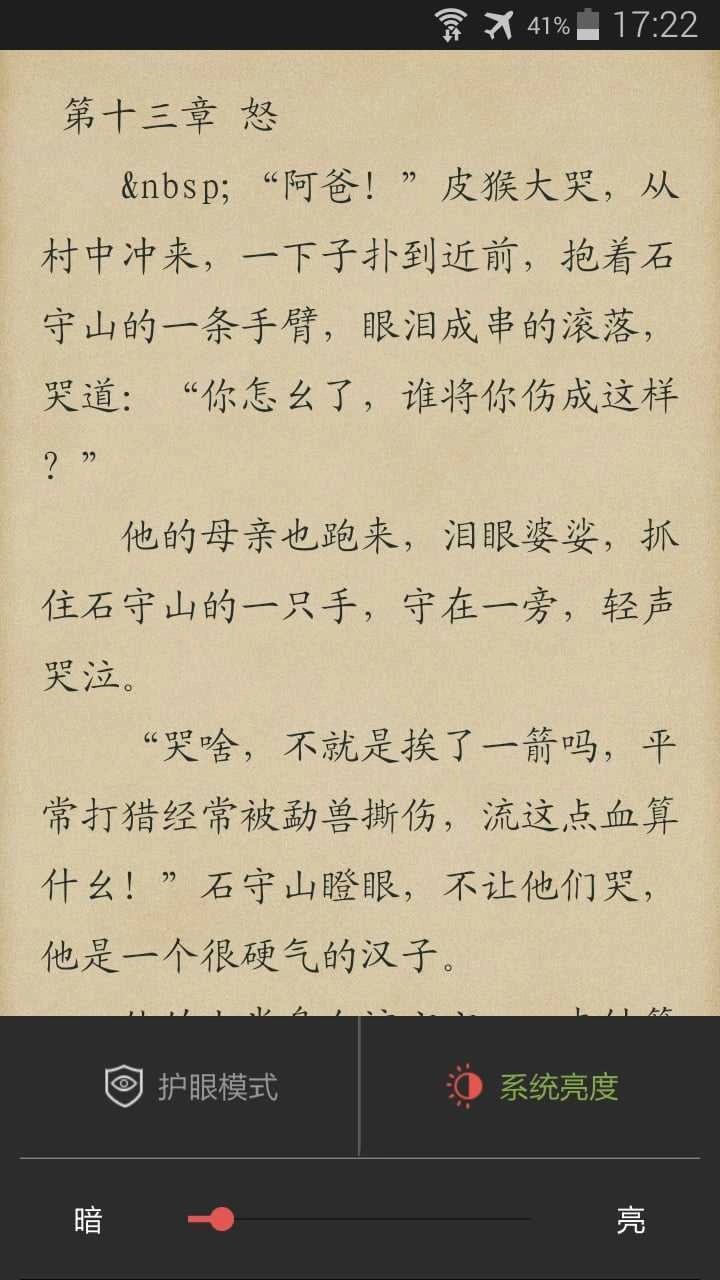 41% 17:22
第十三章 怒
&nbsp; “阿爸！”皮猴大哭，从
村中冲来，一下子扑到近前，抱着石
守山的一条手臂，眼泪成串的滚落，
哭道：“你怎幺了，谁将你伤成这样
？”
他的母亲也跑来，泪眼婆娑，抓
住石守山的一只手，守在一旁，轻声
哭泣。
“哭啥，不就是挨了一箭吗，平
常打猎经常被勐兽撕伤，流这点血算
什幺！”石守山瞪眼，不让他们哭，
他是一个很硬气的汉子。
护眼模式 系统亮度
暗 亮